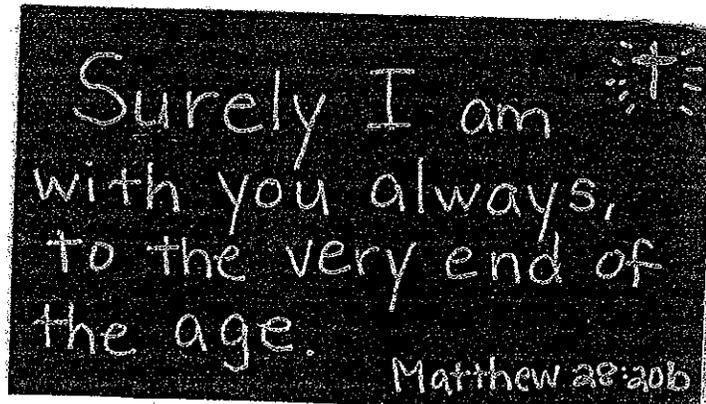 Surely I am
with you always,
to the very end of
the age.
Matthew 28:20b